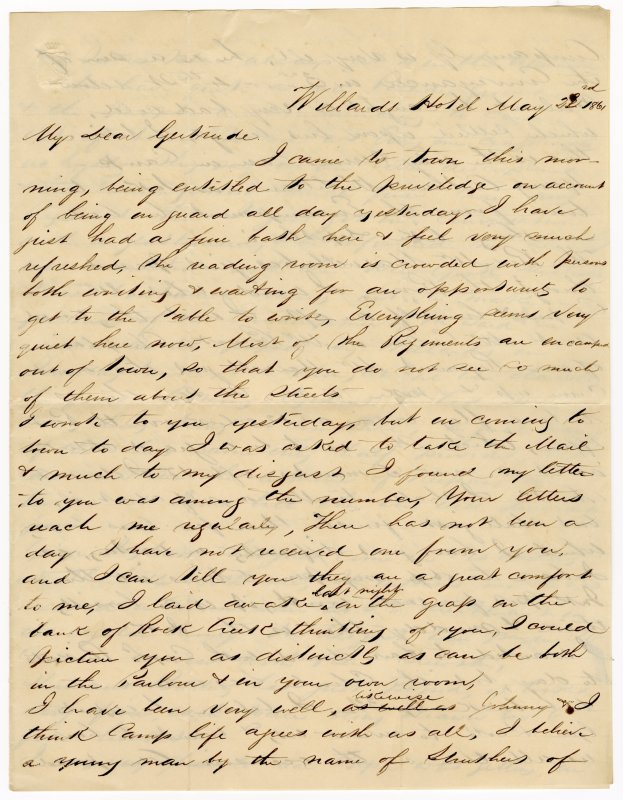 Willards Hotel May 23rd 1861
My Dear Gertrude.
I came to town this mor-
ning, being entitled to the priviledge on account
of being on guard all day yesterday, I have
just had a fine bath here & feel very much
refreshed, the reading room is crowded with persons
both writing & waiting for an opportunity to
get to the table to write, Everything seems very
quiet here now, Most of the Regiments are encamped
out of town, so that you do not see so much
of them about the streets
I wrote to you yesterday, but in coming to
town to day I was asked to take the Mail
& much to my disgust I found my letter
to you was among the number, Your letters
reach me regularly, There has not been a
day I have not received one from you,
and I can tell you they are a great comfort
to me, I laid awake last night on the grass on the
bank of Rock Creek thinking of you, I could
picture you as distinctly as can be both
in the Parlour & in your own room,
I have been very well, as well as likewise Johnny & I
think Camp life agrees with us all, I believe
a young man by the name of Struthers of